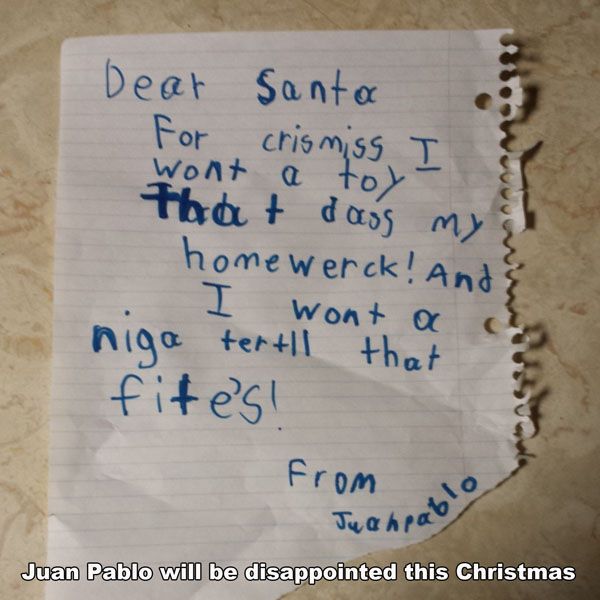 Dear Santa
For crismiss I
wont a toy
That dass my
homewerck! And
I wont a
niga tertll that
fite's!
From
Juanpablo
Juan Pablo will be disappointed this Christmas